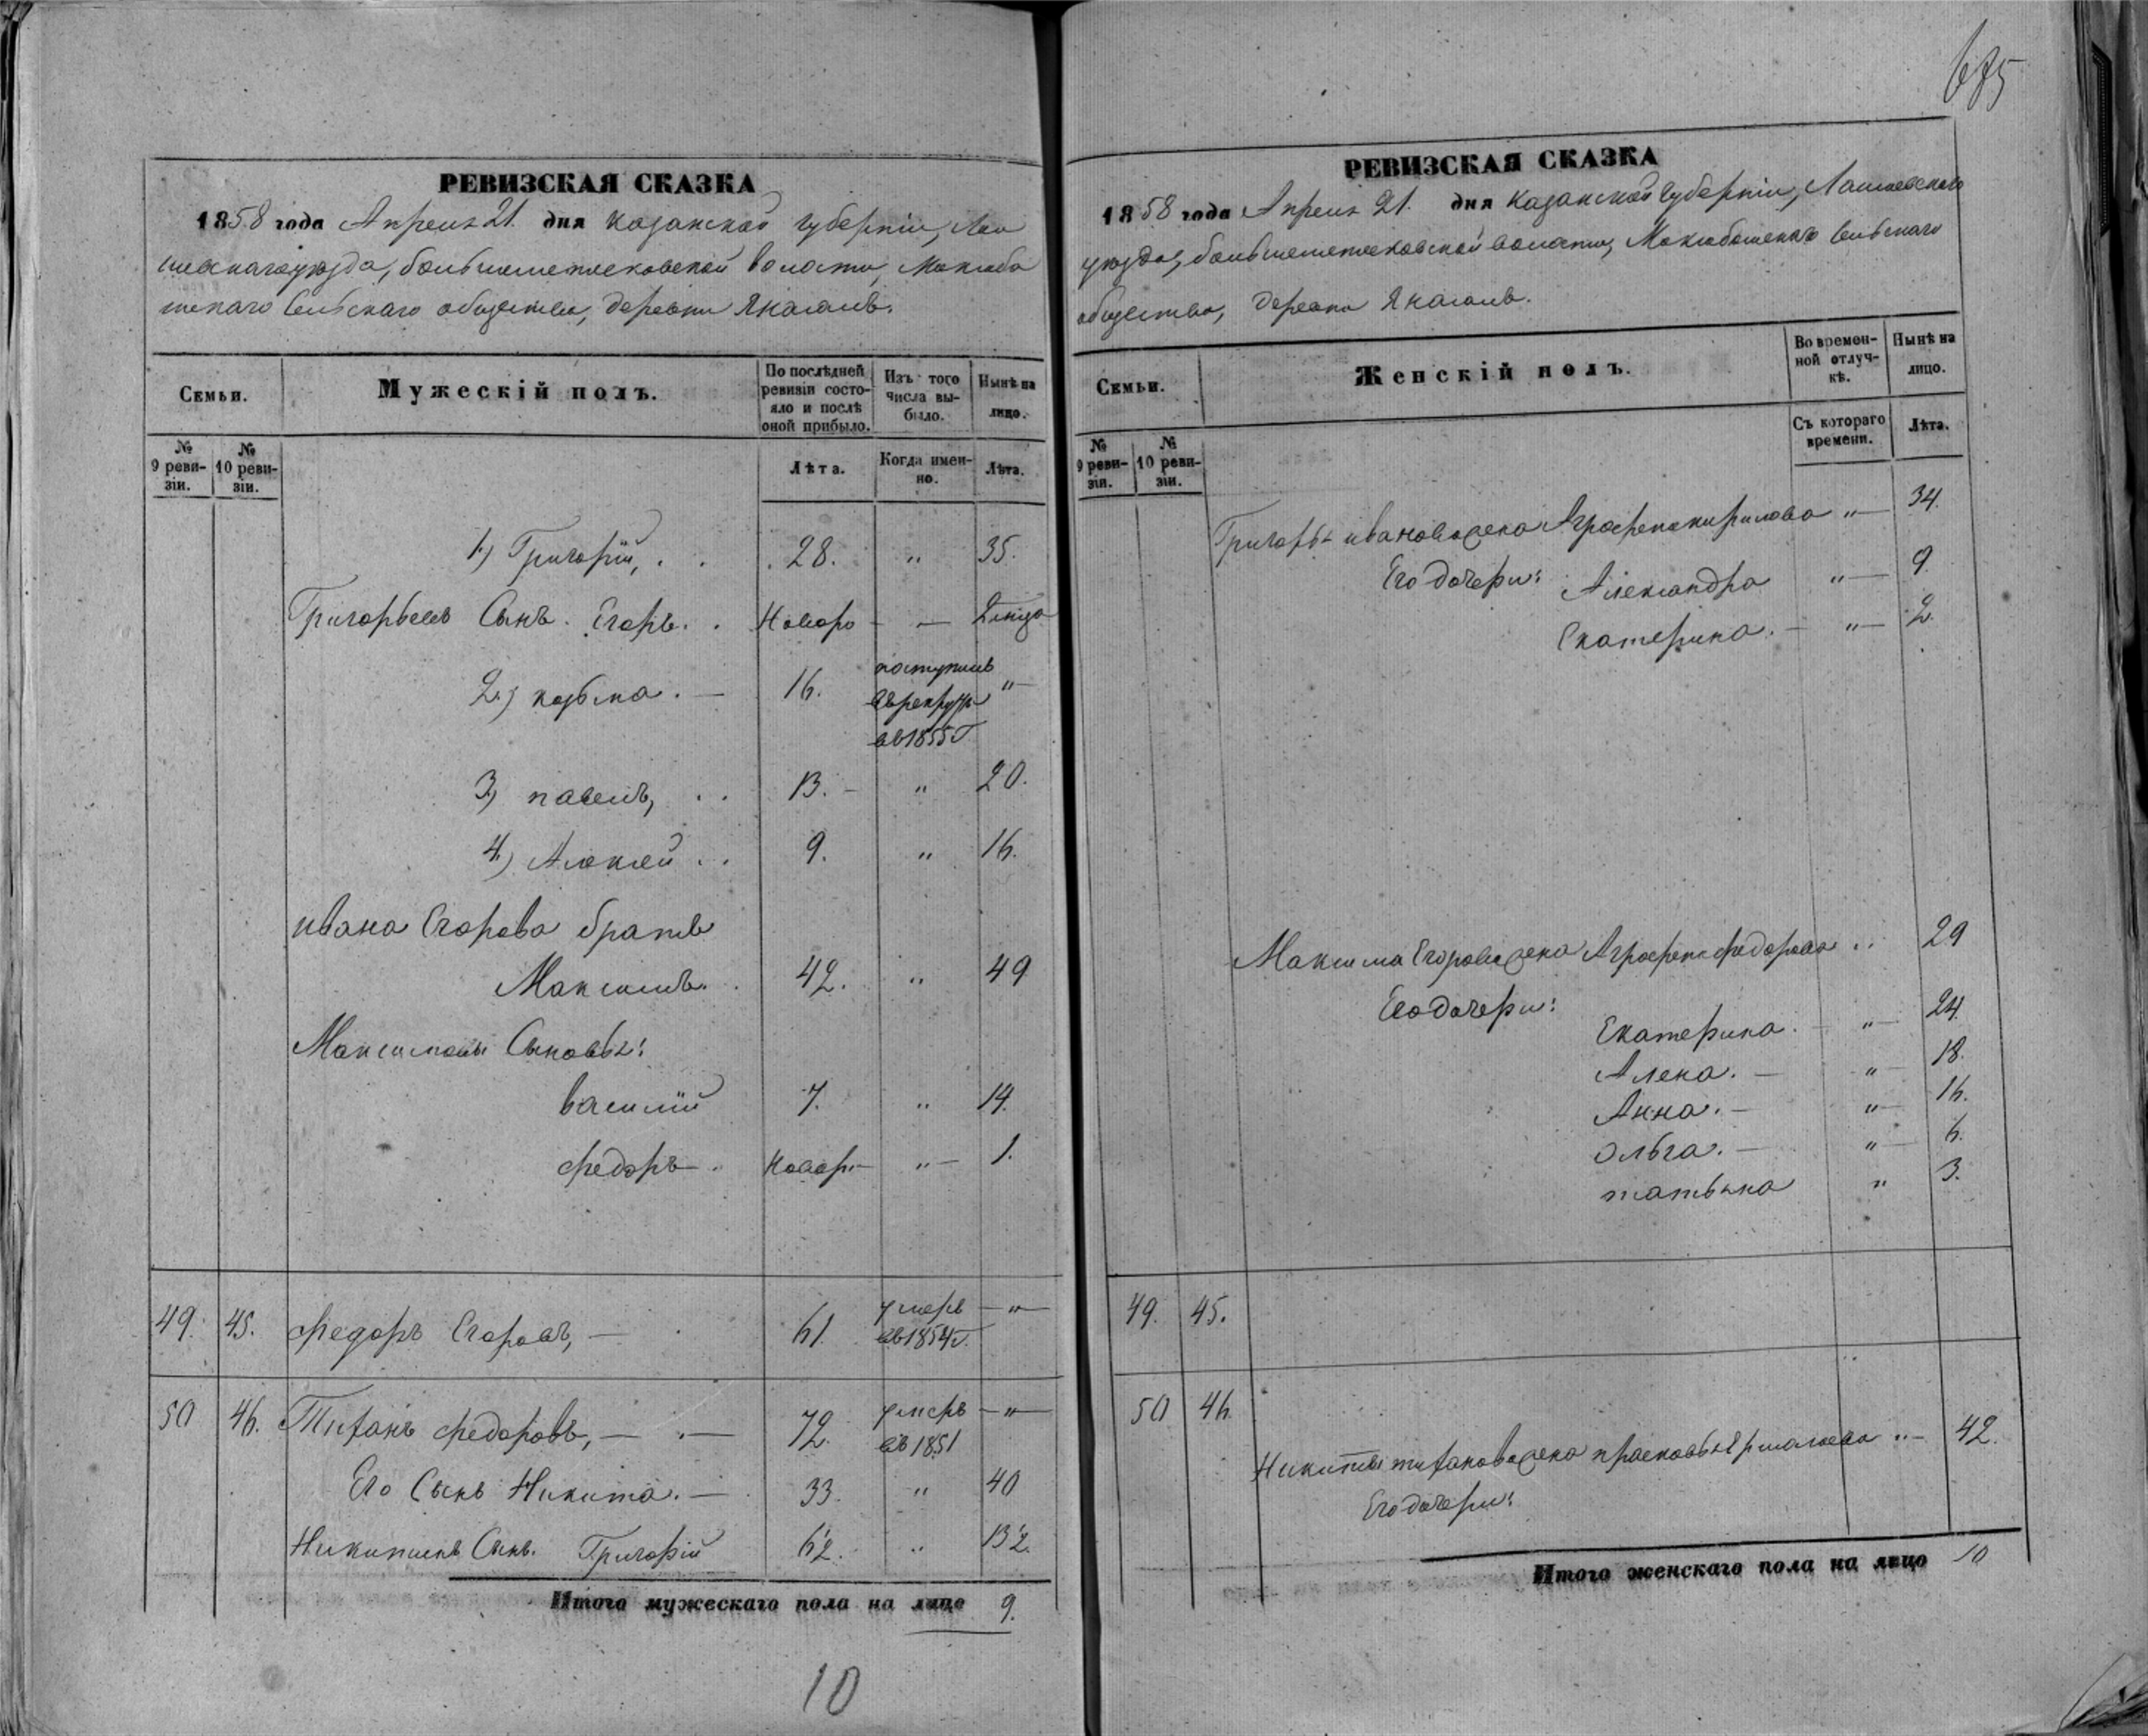 675
РЕВИЗСКАЯ СКАЗКА
1858 года Апреля 21. дня Казанской губерніи, Лаи
шевскаго уезда, больше Метесковской волости, Маклаба
шскаго Сельскаго общества, деревни Янасалъ.
Семьи.
Мужескій полъ.
По послѣдней ревизіи состо-яло и послѣ оной прибыло.
Изъ того числа вы-было.
Нынѣ на лицо.
№ 9 реви-зіи.
№ 10 реви-зіи.
Лѣта.
Когда имен-но.
Лѣта.
1.) Григорій, . . 28. " 35.
Григорьевъ Сынъ. Егоръ. . Новоро — 2 
2.) козьма. — 16. поступилъ "—
въ рекруты
въ 1855 г
3.) павелъ, . . 13. — " 20.
4.) Алексей . . 9. " 16.
ивана Егорова братъ
Максимъ. . 42. " 49
Максимовы Сыновья:
василій 7. " 14.
федоръ — . Новор. — "— 1.
49. 45. федоръ Егоровъ, — 61. умеръ — "—
въ 1854 г.
50 46. Тифанъ федоровъ, — . — 72. умеръ — "—
въ 1851
Его Сынъ Никита. — 33. " 40
Никитинъ Сынъ. Григорій 6½. " 13½.
Итого мужескаго пола на лицо 9.
10
РЕВИЗСКАЯ СКАЗКА
1858 года Апреля 21. дня Казанской губерніи, Лаишевскаго
уезда, больше Метесковской волости, Маклабашскаго Сельскаго
общества, деревни Янасалъ.
Семьи.
Женскій полъ.
Во времен-ной отлуч-кѣ.
Нынѣ на лицо.
№ 9 реви-зіи.
№ 10 реви-зіи.
Съ котораго времени.
Лѣта.
Григорья иванова жена Аграфена кирилова "— 34.
Его дочери: Александра "— 9
Екатерина. — "— 2.
Максима Егорова жена Аграфена федорова .. 29
Его дочери:
Екатерина. — "— 24.
Алена. — "— 18.
Анна. — "— 16.
Ольга. — "— 6.
татьяна " 3.
49. 45.
50 46.
Никиты тифанова жена прасковья "— 42.
Его дочери:
Итого женскаго пола на лицо 10